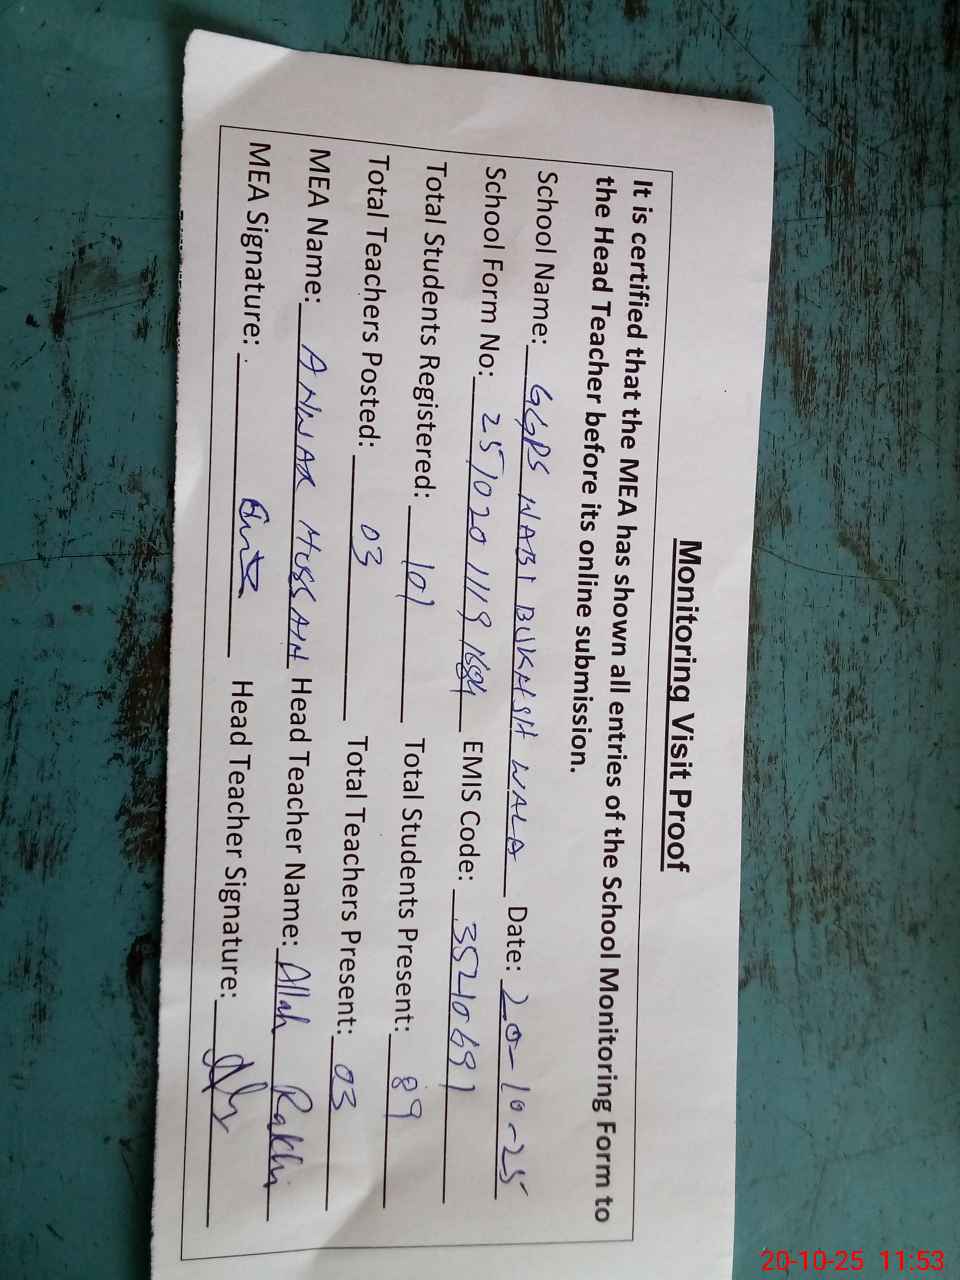 Monitoring Visit Proof
It is certified that the MEA has shown all entries of the School Monitoring Form to
the Head Teacher before its online submission.
School Name: GGPS NABI BUKHSH WALA Date: 20-10-25
School Form No: 257020 1119 1684 EMIS Code: 35210691
Total Students Registered: 101 Total Students Present: 89
Total Teachers Posted: 03 Total Teachers Present: 03
MEA Name: ANWAR HUSSAIN Head Teacher Name: Allah Rakhi
MEA Signature: Head Teacher Signature:
20-10-25 11:53